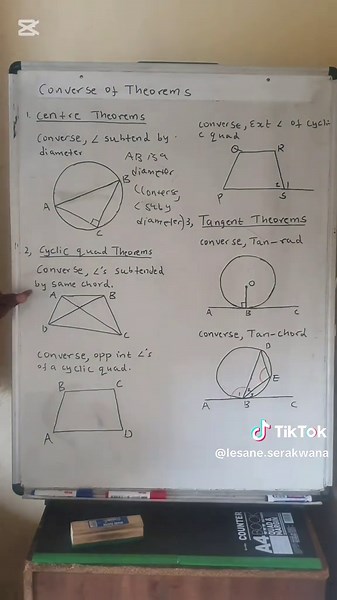 CC
Converse of Theorems
1. Centre Theorems
Converse, ∠ subtend by
diameter
AB is a
diameter
(Converse,
∠ sub by
diameter)
A
B
C
2, Cyclic quad Theorems
Converse, ∠'s subtended
by same chord.
A
B
D
C
Converse, opp int ∠'s
of a cyclic quad.
B
C
A
D
Converse, Ext ∠ of cyclic
c quad
Q
R
P
2 1
S
3, Tangent Theorems
Converse, Tan-rad
O
A
B
C
Converse, Tan-chord
D
E
A
1
B
C
TikTok
@lesane.serakwana
COUNTER
A4 BOOK